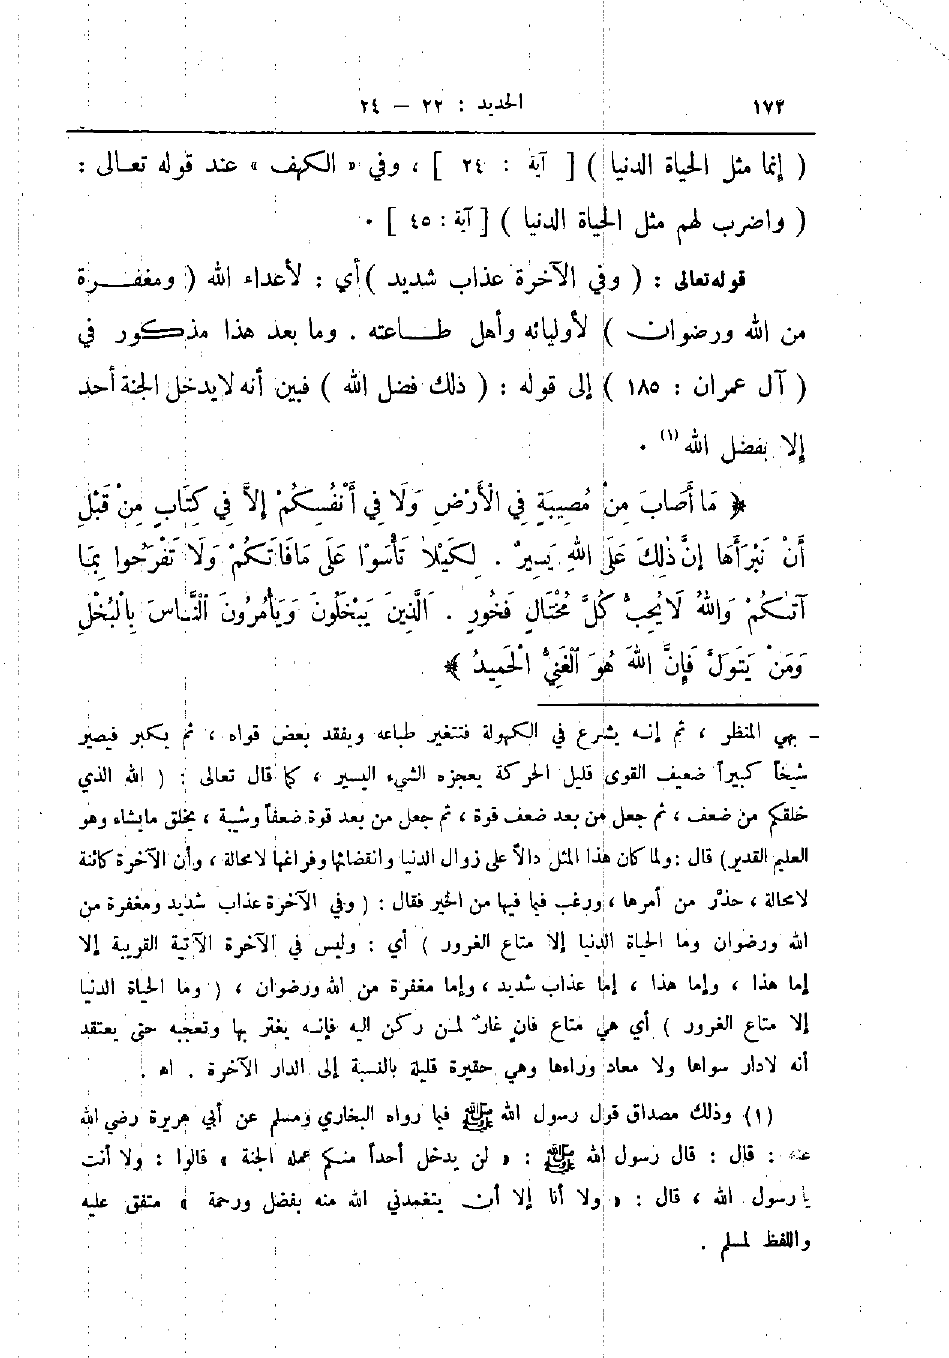 ١٧٣ الحديد : ٢٢ – ٢٤
( إنما مثل الحياة الدنيا ) [ آية : ٢٤ ] ، وفي « الكهف » عند قوله تعالى :
( واضرب لهم مثل الحياة الدنيا ) [ آية : ٤٥ ] .
قوله تعالى : ( وفي الآخرة عذاب شديد ) أي : لأعداء الله ( ومغفرة
من الله ورضوان ) لأوليائه وأهل طاعته . وما بعد هذا مذكور في
( آل عمران : ١٨٥ ) إلى قوله : ( ذلك فضل الله ) فبين أنه لا يدخل الجنة أحد
إلا بفضل الله (١) .
﴿ مَا أَصَابَ مِنْ مُصِيبَةٍ فِي الْأَرْضِ وَلَا فِي أَنْفُسِكُمْ إِلَّا فِي كِتَابٍ مِنْ قَبْلِ
أَنْ نَبْرَأَهَا إِنَّ ذٰلِكَ عَلَى اللهِ يَسِيرٌ . لِكَيْلَا تَأْسَوْا عَلَى مَا فَاتَكُمْ وَلَا تَفْرَحُوا بِمَا
آتٰىكُمْ وَاللهُ لَا يُحِبُّ كُلَّ مُخْتَالٍ فَخُورٍ . الَّذِينَ يَبْخَلُونَ وَيَأْمُرُونَ النَّاسَ بِالْبُخْلِ
وَمَنْ يَتَوَلَّ فَإِنَّ اللهَ هُوَ الْغَنِيُّ الْحَمِيدُ ﴾
– بهي المنظر ، ثم إنه يشرع في الكهولة فتتغير طباعه ويفقد بعض قواه ، ثم يكبر فيصير
شيخاً كبيراً ضعيف القوى قليل الحركة يعجزه الشيء اليسير ، كما قال تعالى : ( الله الذي
خلقكم من ضعف ، ثم جعل من بعد ضعف قوة ، ثم جعل من بعد قوة ضعفاً وشيبة ، يخلق ما يشاء وهو
العليم القدير) قال : ولما كان هذا المثل دالاً على زوال الدنيا وانقضائها وفراغها لا محالة ، وأن الآخرة كائنة
لا محالة ، حذّر من أمرها ، ورغب فيما فيها من الخير فقال : ( وفي الآخرة عذاب شديد ومغفرة من
الله ورضوان وما الحياة الدنيا إلا متاع الغرور ) أي : وليس في الآخرة الآتية القريبة إلا
إما هذا ، وإما هذا ، إما عذاب شديد ، وإما مغفرة من الله ورضوان ، ( وما الحياة الدنيا
إلا متاع الغرور ) أي هي متاع فانٍ غارٌ لمن ركن اليه فإنه يغتر بها وتعجبه حتى يعتقد
أنه لا دار سواها ولا معاد وراءها وهي حقيرة قليلة بالنسبة إلى الدار الآخرة . اه .
(١) وذلك مصداق قول رسول الله ﷺ فيما رواه البخاري ومسلم عن أبي هريرة رضي الله
عنه : قال : قال رسول الله ﷺ : « لن يدخل أحداً منكم عمله الجنة » قالوا : ولا أنت
يا رسول الله ، قال : « ولا أنا إلا أن يتغمدني الله منه بفضل ورحمة » متفق عليه
واللفظ لمسلم .